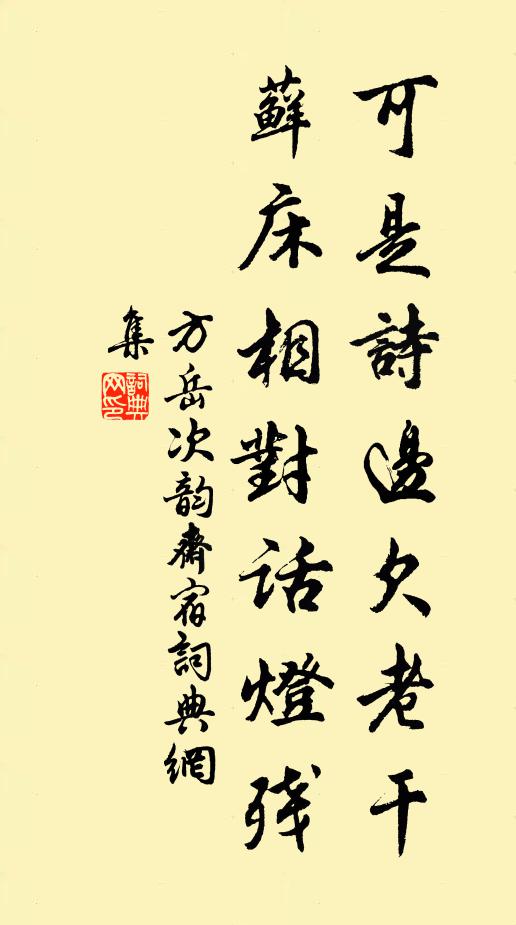 可是詩邊欠老干
蘚床相對話燈残
方岳次韵齋宿詞典網
集
詞典
网印